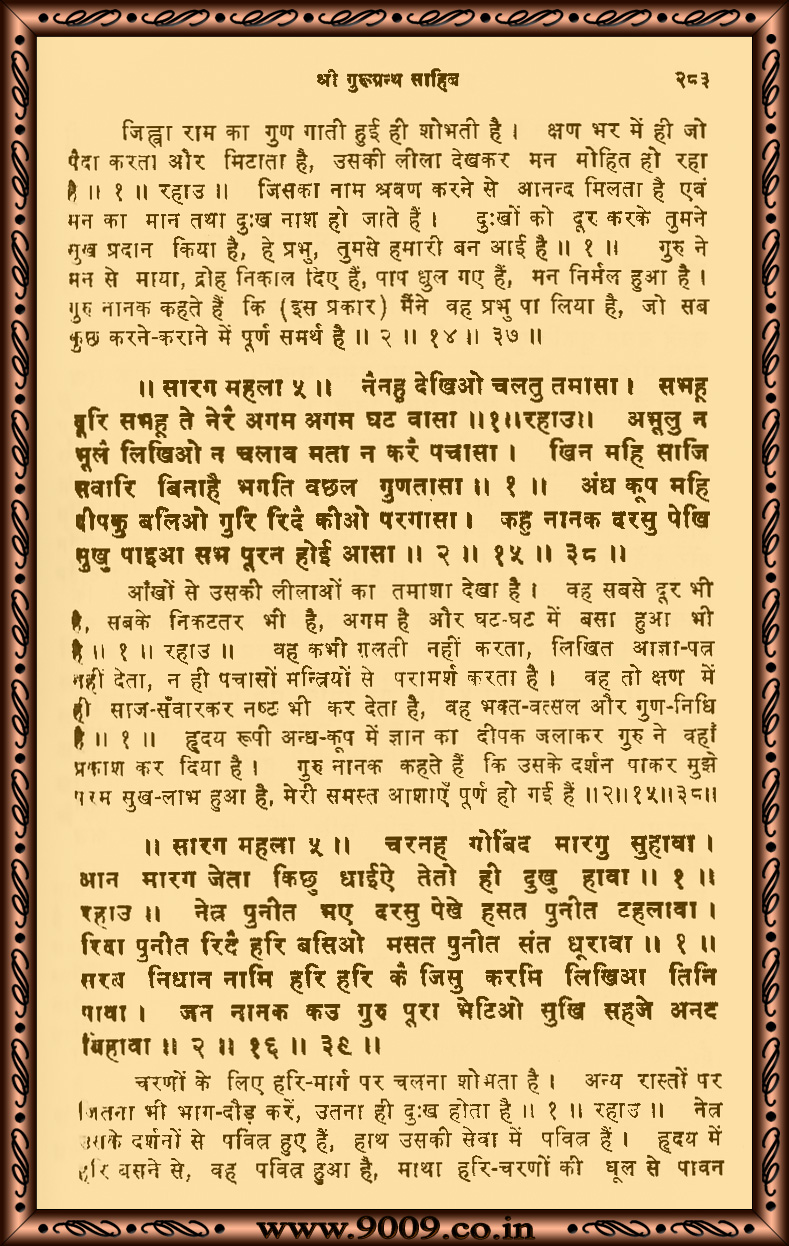 श्री गुरूग्रन्थ साहिब २८३
जिह्वा राम का गुण गाती हुई ही शोभती है । क्षण भर में ही जो
पैदा करता और मिटाता है, उसकी लीला देखकर मन मोहित हो रहा
है ॥ १ ॥ रहाउ ॥ जिसका नाम श्रवण करने से आनन्द मिलता है एवं
मन का मान तथा दुःख नाश हो जाते हैं । दुःखों को दूर करके तुमने
सुख प्रदान किया है, हे प्रभु, तुमसे हमारी बन आई है ॥ १ ॥ गुरु ने
मन से माया, द्रोह निकाल दिए हैं, पाप धुल गए हैं, मन निर्मल हुआ है ।
गुरु नानक कहते हैं कि (इस प्रकार) मैंने वह प्रभु पा लिया है, जो सब
कुछ करने-कराने में पूर्ण समर्थ है ॥ २ ॥ १४ ॥ ३७ ॥
॥ सारग महला ५ ॥ नैनहु देखिओ चलतु तमासा । सभहू
दूरि सभहू ते नेरै अगम अगम घट वासा ॥१॥रहाउ॥ अभूलु न
भूलै लिखिओ न चलावै मता न करै पचासा । खिन महि साजि
सवारि बिनाहै भगति वछल गुणतासा ॥ १ ॥ अंध कूप महि
दीपकु बलिओ गुरि रिदै कीओ परगासा । कहु नानक दरसु पेखि
सुखु पाइआ सभ पूरन होई आसा ॥ २ ॥ १५ ॥ ३८ ॥
आँखों से उसकी लीलाओं का तमाशा देखा है । वह सबसे दूर भी
है, सबके निकटतर भी है, अगम है और घट-घट में बसा हुआ भी
है ॥ १ ॥ रहाउ ॥ वह कभी ग़लती नहीं करता, लिखित आज्ञा-पत्र
नहीं देता, न ही पचासों मन्त्रियों से परामर्श करता है । वह तो क्षण में
ही साज-सँवारकर नष्ट भी कर देता है, वह भक्त-वत्सल और गुण-निधि
है ॥ १ ॥ हृदय रूपी अन्ध-कूप में ज्ञान का दीपक जलाकर गुरु ने वहाँ
प्रकाश कर दिया है । गुरु नानक कहते हैं कि उसके दर्शन पाकर मुझे
परम सुख-लाभ हुआ है, मेरी समस्त आशाएँ पूर्ण हो गई हैं ॥२॥१५॥३८॥
॥ सारग महला ५ ॥ चरनह गोबिंद मारगु सुहावा ।
आन मारग जेता किछु धाईऐ तेतो ही दुखु हावा ॥ १ ॥
रहाउ ॥ नेत्र पुनीत भए दरसु पेखे हसत पुनीत टहलावा ।
रिदा पुनीत रिदै हरि बसिओ मसत पुनीत संत धूरावा ॥ १ ॥
सरब निधान नामि हरि हरि कै जिसु करमि लिखिआ तिनि
पावा । जन नानक कउ गुरु पूरा भेटिओ सुखि सहजे अनद
बिहावा ॥ २ ॥ १६ ॥ ३९ ॥
चरणों के लिए हरि-मार्ग पर चलना शोभता है । अन्य रास्तों पर
जितना भी भाग-दौड़ करें, उतना ही दुःख होता है ॥ १ ॥ रहाउ ॥ नेत्र
उसके दर्शनों से पवित्र हुए हैं, हाथ उसकी सेवा में पवित्र हैं । हृदय में
हरि बसने से, वह पवित्र हुआ है, माथा हरि-चरणों की धूल से पावन
www.9009.co.in